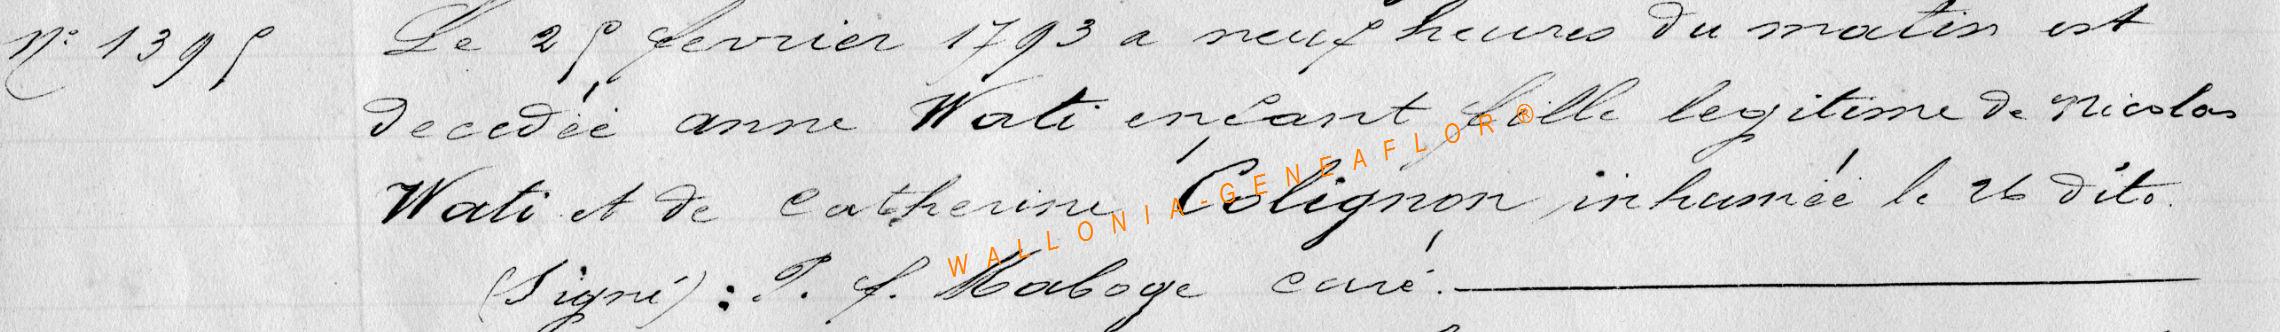 N° 1395 Le 25 fevrier 1793 a neuf heures du matin est
decedée anne Wati enfant fille legitime de Nicolas
Wati et de Catherine Colignon inhumée le 26 dito.
(Signé) : P. f. Maboge curé.
WALLONIA-GENEAFLOR®